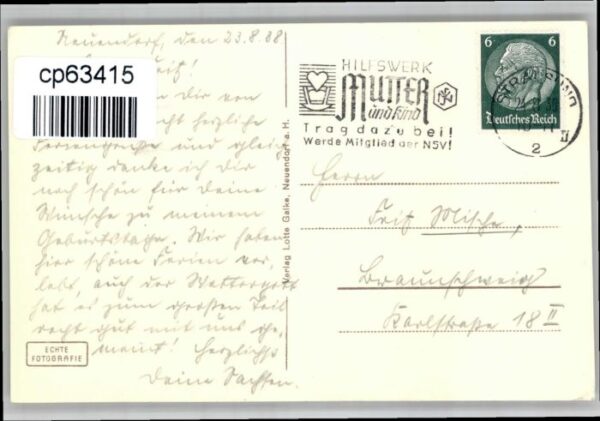 Neuendorf, den 23.8.38
cp63415
Dir von
herzliche
Feriengrüße und gleich
zeitig danke ich Dir
noch schön für Deine
Wünsche zu meinem
Geburtstage. Wir haben
hier schöne Ferien ver
lebt, auch der Wettergott
hat es zum großen Teil
recht gut mit uns ge
meint! Herzlichst
Deine
ECHTE
FOTOGRAFIE
Verlag Lotte Galke, Neuendorf a. H.
HILFSWERK
MUTTER
und Kind
Trag dazu bei!
Werde Mitglied der NSV!
6 6
Deutsches Reich
STRALSUND
2
Herrn
Fritz Mische,
Braunschweig
Karlstraße 18 II